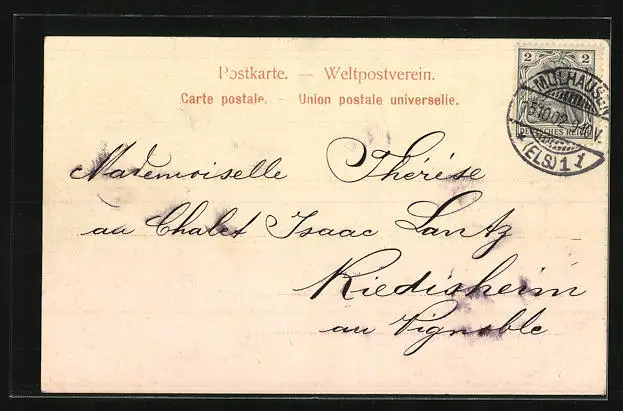 Postkarte. — Weltpostverein.
Carte postale. - Union postale universelle.
2 2
DEUTSCHES REICH
MÜLHAUSEN
(ELS) 1
Mademoiselle Thérèse
au Chalet Isaac Lantz
Riedisheim
au Vignoble